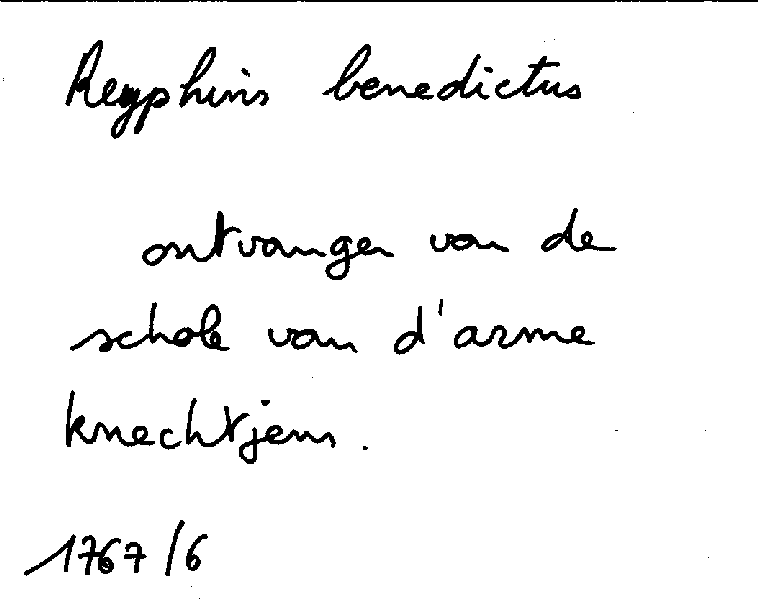 Reyphins benedictus
ontvanger van de
schole van d'arme
knechtjens.
1767/6